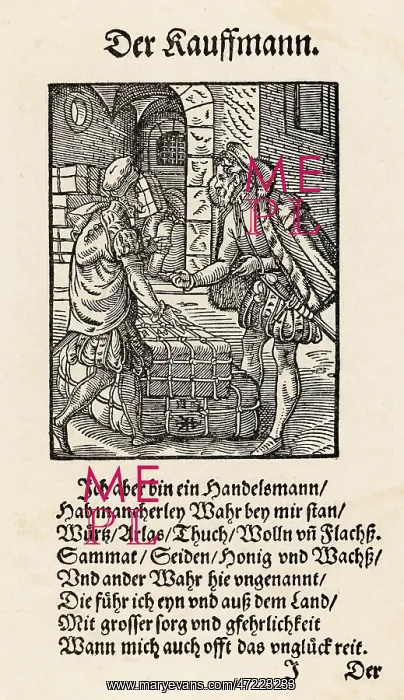 Der Kauffmann.
ME
PL
Ich aber bin ein Handelsmann/
Hab mancherley Wahr bey mir stan/
Würtz/Arlas/Thuch/Wolln vñ Flachß.
Sammat/Seiden/Honig vnd Wachß/
Vnd ander Wahr hie vngenannt/
Die führ ich eyn vnd auß dem Land/
Mit grosser sorg vnd gfehrlichkeit
Wann mich auch offt das vnglück reit.
ME
PL
J Der
www.maryevans.com/47223233